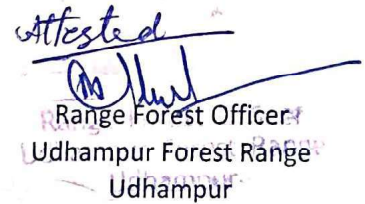 Attested
Range Forest Officer
Udhampur Forest Range
Udhampur